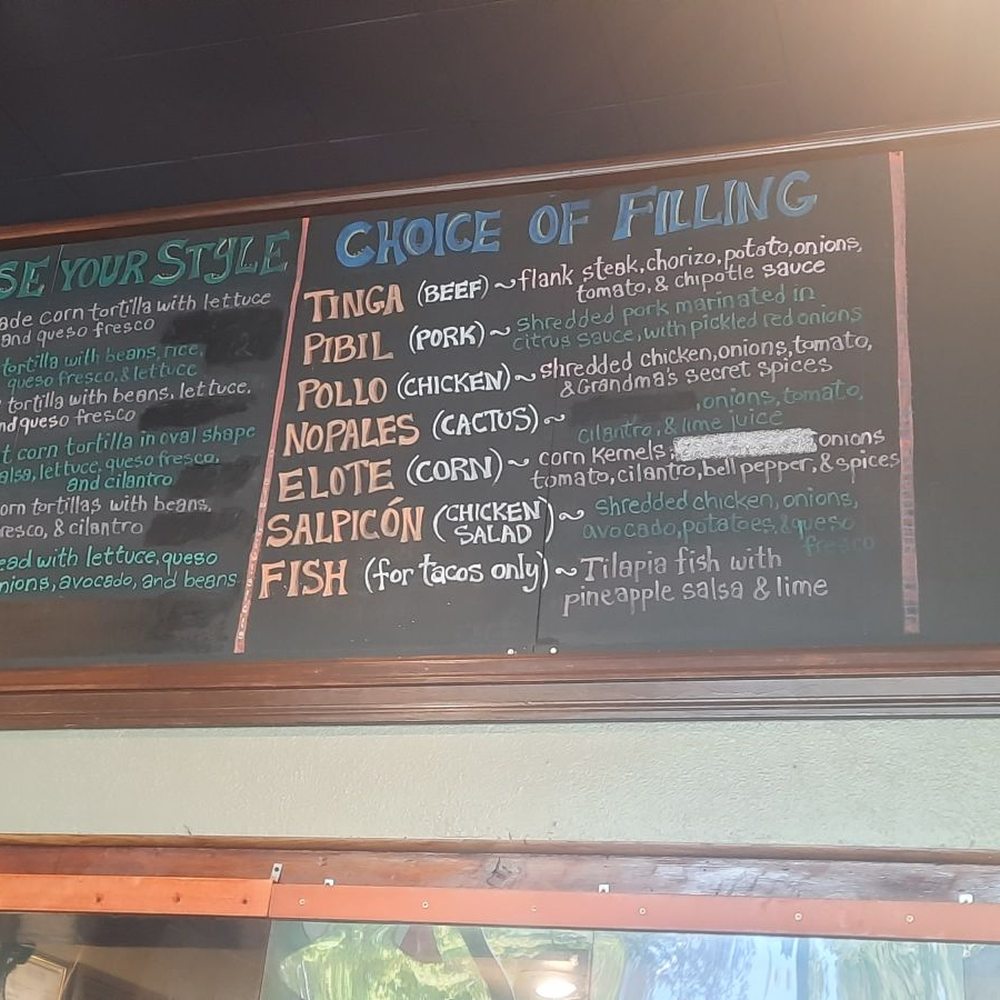 SE YOUR STYLE
ade corn tortilla with lettuce
and queso fresco
tortilla with beans, rice, &
queso fresco, & lettuce
tortilla with beans, lettuce,
nd queso fresco
t corn tortilla in oval shape
alsa, lettuce, queso fresco,
and cilantro
orn tortillas with beans,
resco, & cilantro
ead with lettuce, queso
nions, avocado, and beans
CHOICE OF FILLING
TINGA (BEEF) ~ flank steak, chorizo, potato, onions,
tomato, & chipotle sauce
PIBIL (PORK) ~ shredded pork marinated in
citrus sauce, with pickled red onions
POLLO (CHICKEN) ~ shredded chicken, onions, tomato,
& Grandma's secret spices
NOPALES (CACTUS) ~ , onions, tomato,
cilantro, & lime juice
ELOTE (CORN) ~ corn kernels, onions
tomato, cilantro, bell pepper, & spices
SALPICÓN (CHICKEN SALAD) ~ shredded chicken, onions,
avocado, potatoes, & queso
fresco
FISH (for tacos only) ~ Tilapia fish with
pineapple salsa & lime